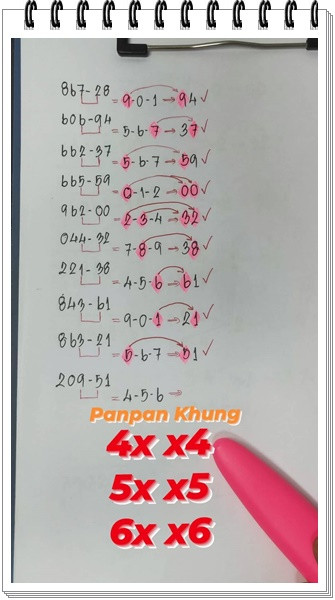 867-28
= 9-0-1 → 94 ✓
606-94
= 5-6-7 → 37 ✓
662-37
= 5-6-7 → 59 ✓
665-59
= 0-1-2 → 00 ✓
962-00
= 2-3-4 → 32 ✓
044-32
= 7-8-9 → 38 ✓
221-38
= 4-5-6 → 61 ✓
843-61
= 9-0-1 → 21 ✓
863-21
= 5-6-7 → 51 ✓
209-51
= 4-5-6 →
Panpan Khung
4x x4
5x x5
6x x6